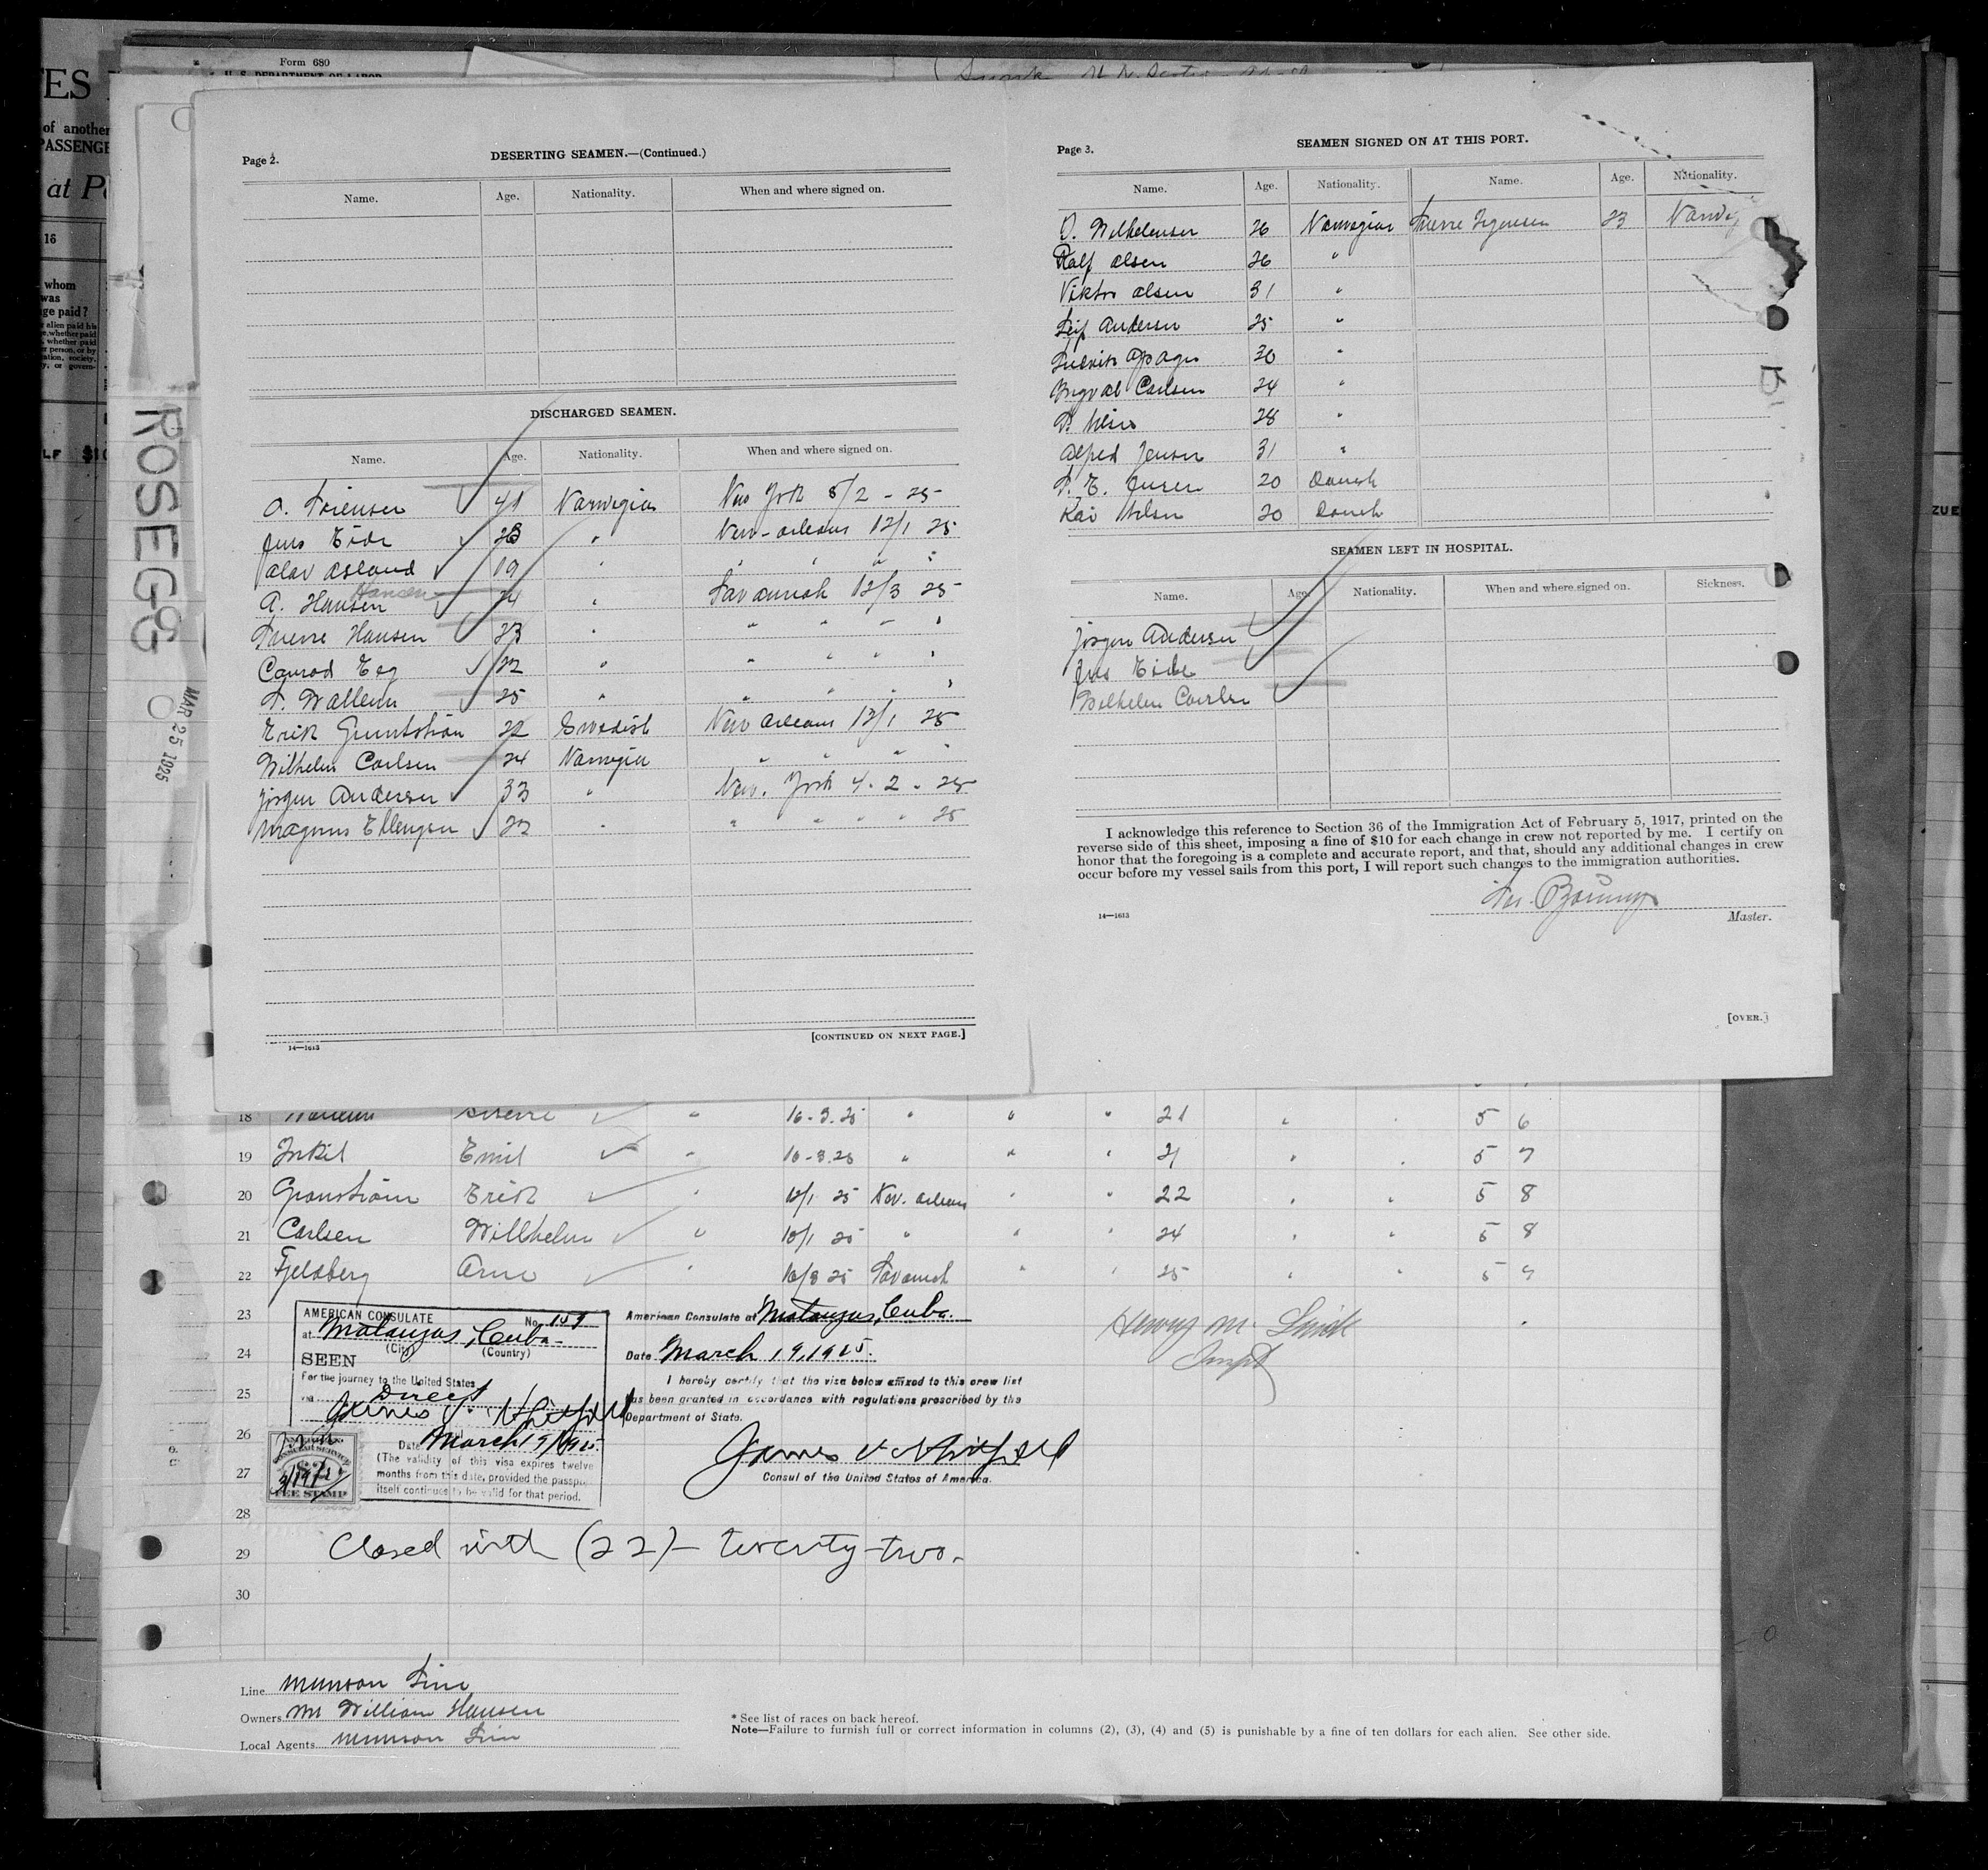 Form 680
U. S. DEPARTMENT OF LABOR
of another
PASSENGE
at
16
whom
was
ge paid?
ROSEGG
MAR 25 1925
Page 2.
DESERTING SEAMEN.—(Continued.)
Name. Age. Nationality. When and where signed on.
DISCHARGED SEAMEN.
Name. Age. Nationality. When and where signed on.
41 Norwegian New York 5/2 - 25
Jens Eide 23 " New-Orleans 12/1 25
Olav Asland 19 " " " " "
Hansen
A. Hansen 24 " Savannah 12/3 25
Sverre Hansen 23 " " " " "
Conrad Eeg 22 " " " " "
25 " " " " "
Erik 22 Swedish New Orleans 12/1 25
Wilhelm Carlsen 24 Norwegian " " " "
Jörgen Andersen 33 " New. York 4. 2. 25
Magnus Ellengsen 22 " " " " " 25
[CONTINUED ON NEXT PAGE.]
14—1613
Page 3.
SEAMEN SIGNED ON AT THIS PORT.
Name. Age. Nationality. Name. Age. Nationality.
26 Norwegian Sverre 23
Ralf Olsen 26 "
Viktor Olsen 31 "
Leif Andersen 25 "
30 "
Ingvald Carlsen 24 "
28 "
Alfred Jensen 31 "
20 Danish
Kai Nilsen 20 Danish
SEAMEN LEFT IN HOSPITAL.
Name. Age. Nationality. When and where signed on. Sickness.
Jörgen Andersen
Jens Eide
Wilhelm Carlsen
I acknowledge this reference to Section 36 of the Immigration Act of February 5, 1917, printed on the
reverse side of this sheet, imposing a fine of $10 for each change in crew not reported by me. I certify on
honor that the foregoing is a complete and accurate report, and that, should any additional changes in crew
occur before my vessel sails from this port, I will report such changes to the immigration authorities.
14—1613
Master.
[OVER.]
18 Sverre " 16-3.25 " " " 21 " " 5 6
19 Emil " 16-3.25 " " " 21 " " 5 7
20 Granström Erik " 12/1 25 New. Orleans " " 22 " " 5 8
21 Carlsen Willhelm " 10/1 25 " " " 24 " " 5 8
22 Fjeldberg Arne " 25 " " 25 " " 5
23
24
25
26
27
28
29
30
AMERICAN CONSULATE
No.
at Matanzas, Cuba
(City) (Country)
SEEN
For the journey to the United States
via Direct
James V. Whitfield
Date March 19, 1925
(The validity of this visa expires twelve
months from this date, provided the passport
itself continues to be valid for that period.
FEE STAMP
American Consulate at Matanzas, Cuba.
Date March 19, 1925.
I hereby certify that the visa below affixed to this crew list
has been granted in accordance with regulations prescribed by the
Department of State.
James V. Whitfield
Consul of the United States of America.
Henry M.
Closed with (22)— twenty-two.
Line Munson Line
Owners Mr William Hansen
Local Agents Munson Line
* See list of races on back hereof.
Note—Failure to furnish full or correct information in columns (2), (3), (4) and (5) is punishable by a fine of ten dollars for each alien. See other side.